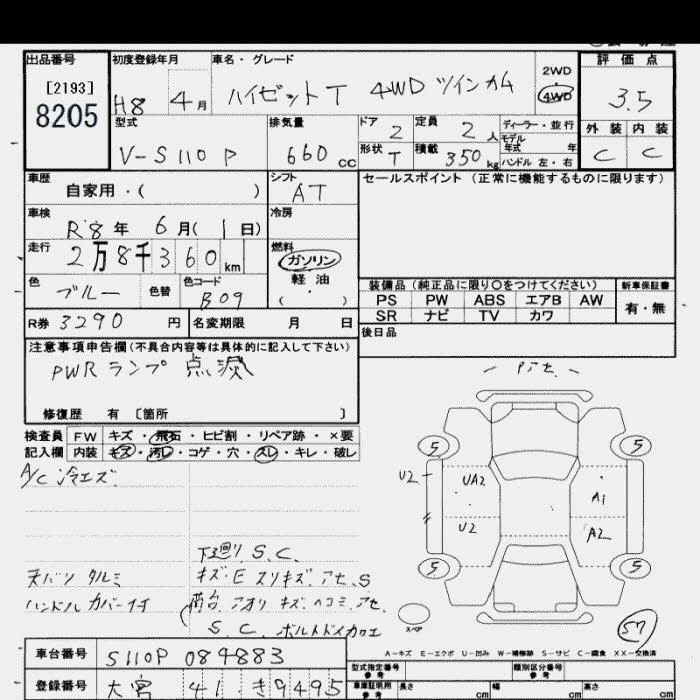 出品番号 初度登録年月 車名・グレード 評価点
[2193]
8205
H8 4月 ハイゼットT 4WD ツインカム 2WD 4WD 3.5
型式 排気量 ドア 2 定員 2人 ディーラー・並行 外装 内装
モデル年式 年
V-S110P 660cc 形状 T 積載 350kg ハンドル 左・右 C C
車歴 シフト セールスポイント (正常に機能するものに限ります)
自家用・( ) AT
車検 冷房
R8年 6月(1日)
走行 燃料
2万8千360km ガソリン
軽油
( )
色 色替 色コード
ブルー B09
装備品(純正品に限り○をつけてください) 新車保証書
PS PW ABS エアB AW 有・無
SR ナビ TV カワ
R券 3290円 名変期限 月 日 後日品
注意事項申告欄(不具合内容等は具体的に記入して下さい)
PWRランプ 点滅
修復歴 有 〔箇所 〕
検査員 FW キズ・飛石・ヒビ割・リペア跡・×要
記入欄 内装 キズ・汚レ・コゲ・穴・スレ・キレ・破レ
A/C 冷エズ
下廻リ S.C.
天バリ タルミ キズ・E スリキズ.アセ.S
ハンドルカバー付 荷台.アオリ キズ.ヘコミ.アセ.
S.C. ボルトドメカロエ
アセ.
5 5
U2 UA2 A1
U2 A2
5 5
スペア
57
A-キズ E-エクボ U-凹み W-補修跡 S-サビ C-腐食 XX-交換済
車台番号 S110P 084883
型式指定番号 参考 類別区分番号 参考
登録番号 大宮 41 き9495
車庫証明用 参考 長さ cm 幅 cm 高さ cm